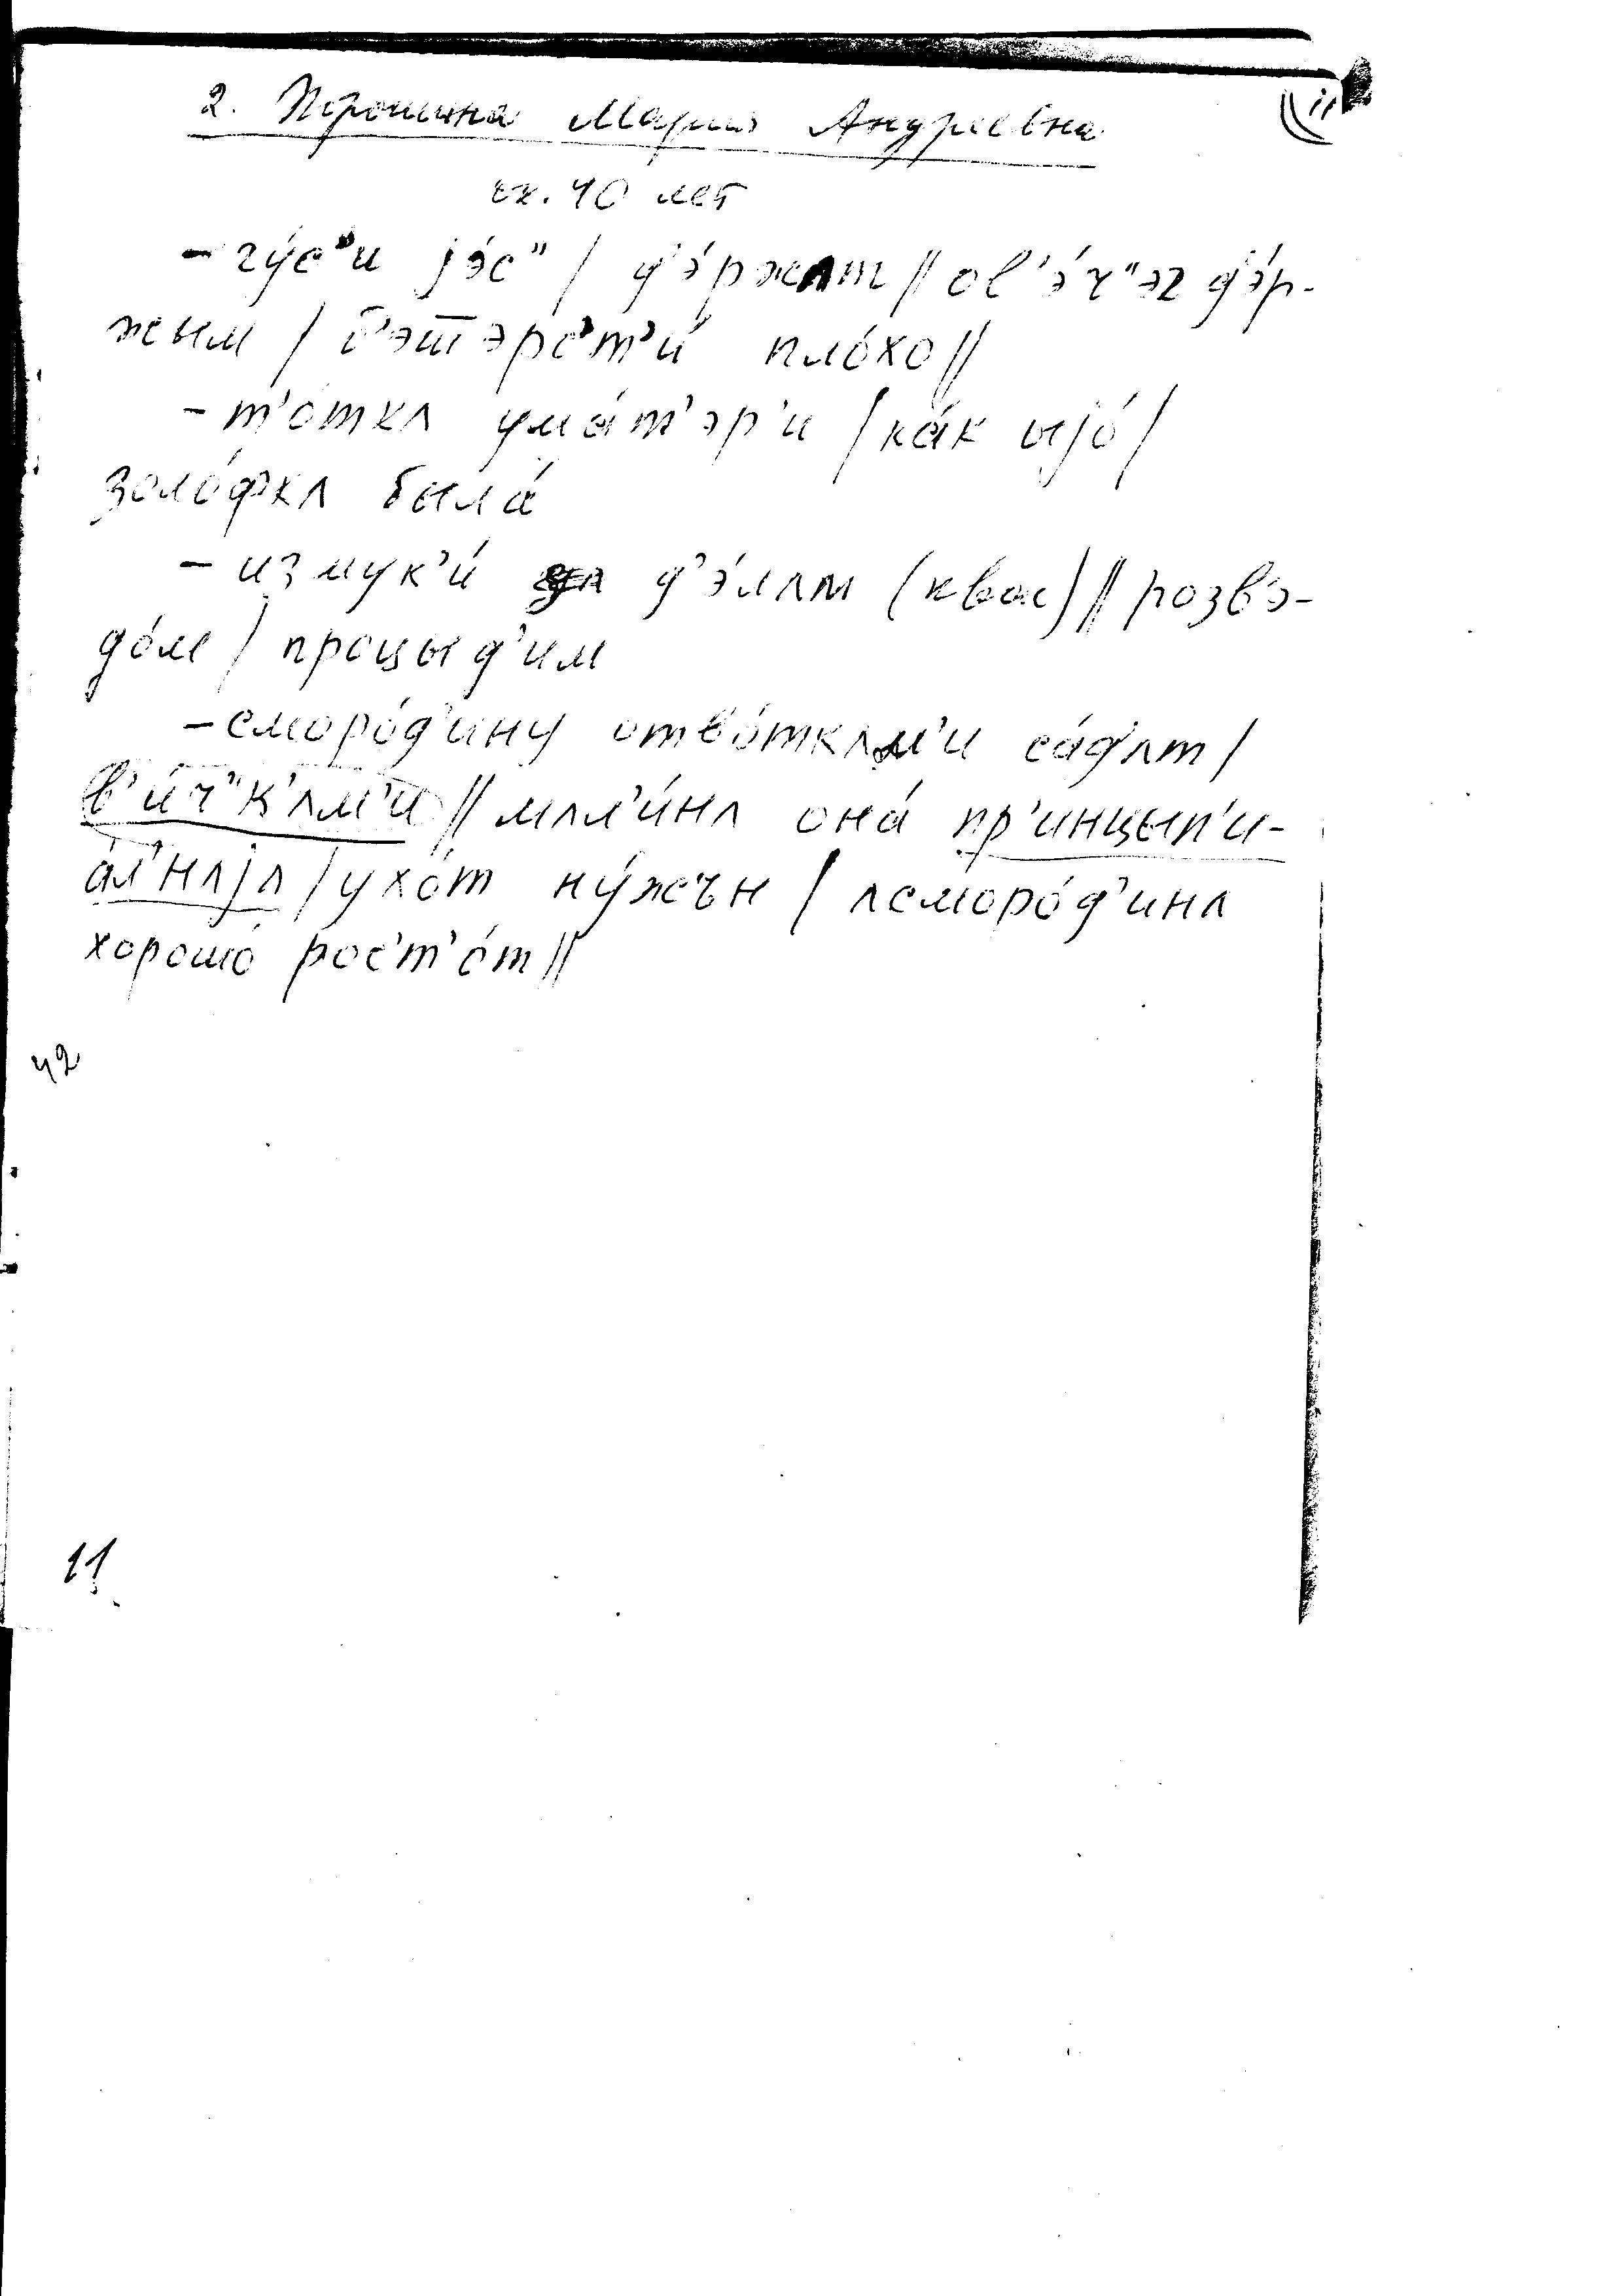 2. Пронина Мария Андреевна
11
ок. 40 лет
– гу́с"и jэ́с" / д'э́ржʌт // ов'э́ч"эг д'э́р-
жым / б'эшэрс'т'и́ пло́хо //
– т'о́ткʌ ума́т'эр'и / ка́к ыjо́ /
золо́фкʌ была́
– измук'и́ д'э́лʌм (квас) // розв'э-
до́м / процыд'им
– сморо́д'ину отво́ткʌм'и са́д'ʌт /
в'и́ч"к'ʌм'и // мʌл'и́нʌ она́ пр'инцып'и-
а́л'нʌjʌ / ухо́т ну́жън / ʌсморо́д'инʌ
хорошо́ рос'т'о́т //
42
11